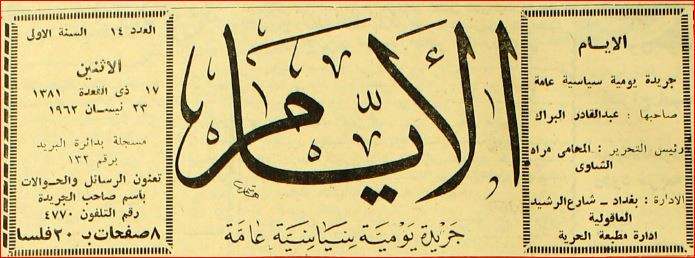 الايام
جريدة يومية سياسية عامة
صاحبها : عبدالقادر البراك
رئيس التحرير : المحامي مراد
الشاوى
الادارة : بغداد ـ شارع الرشيد
العاقولية
ادارة مطبعة الحرية
الأيام
جريدة يومية سياسية عامة
العدد ١٤ السنة الاولى
الاثنين
١٧ ذى القعدة ١٣٨١
٢٣ نيسان ١٩٦٢
مسجلة بدائرة البريد
برقم ١٣٢
تعنون الرسائل والحوالات
باسم صاحب الجريدة
رقم التلفون ٤٧٧٠
٨ صفحات ب ٢٠ فلسا